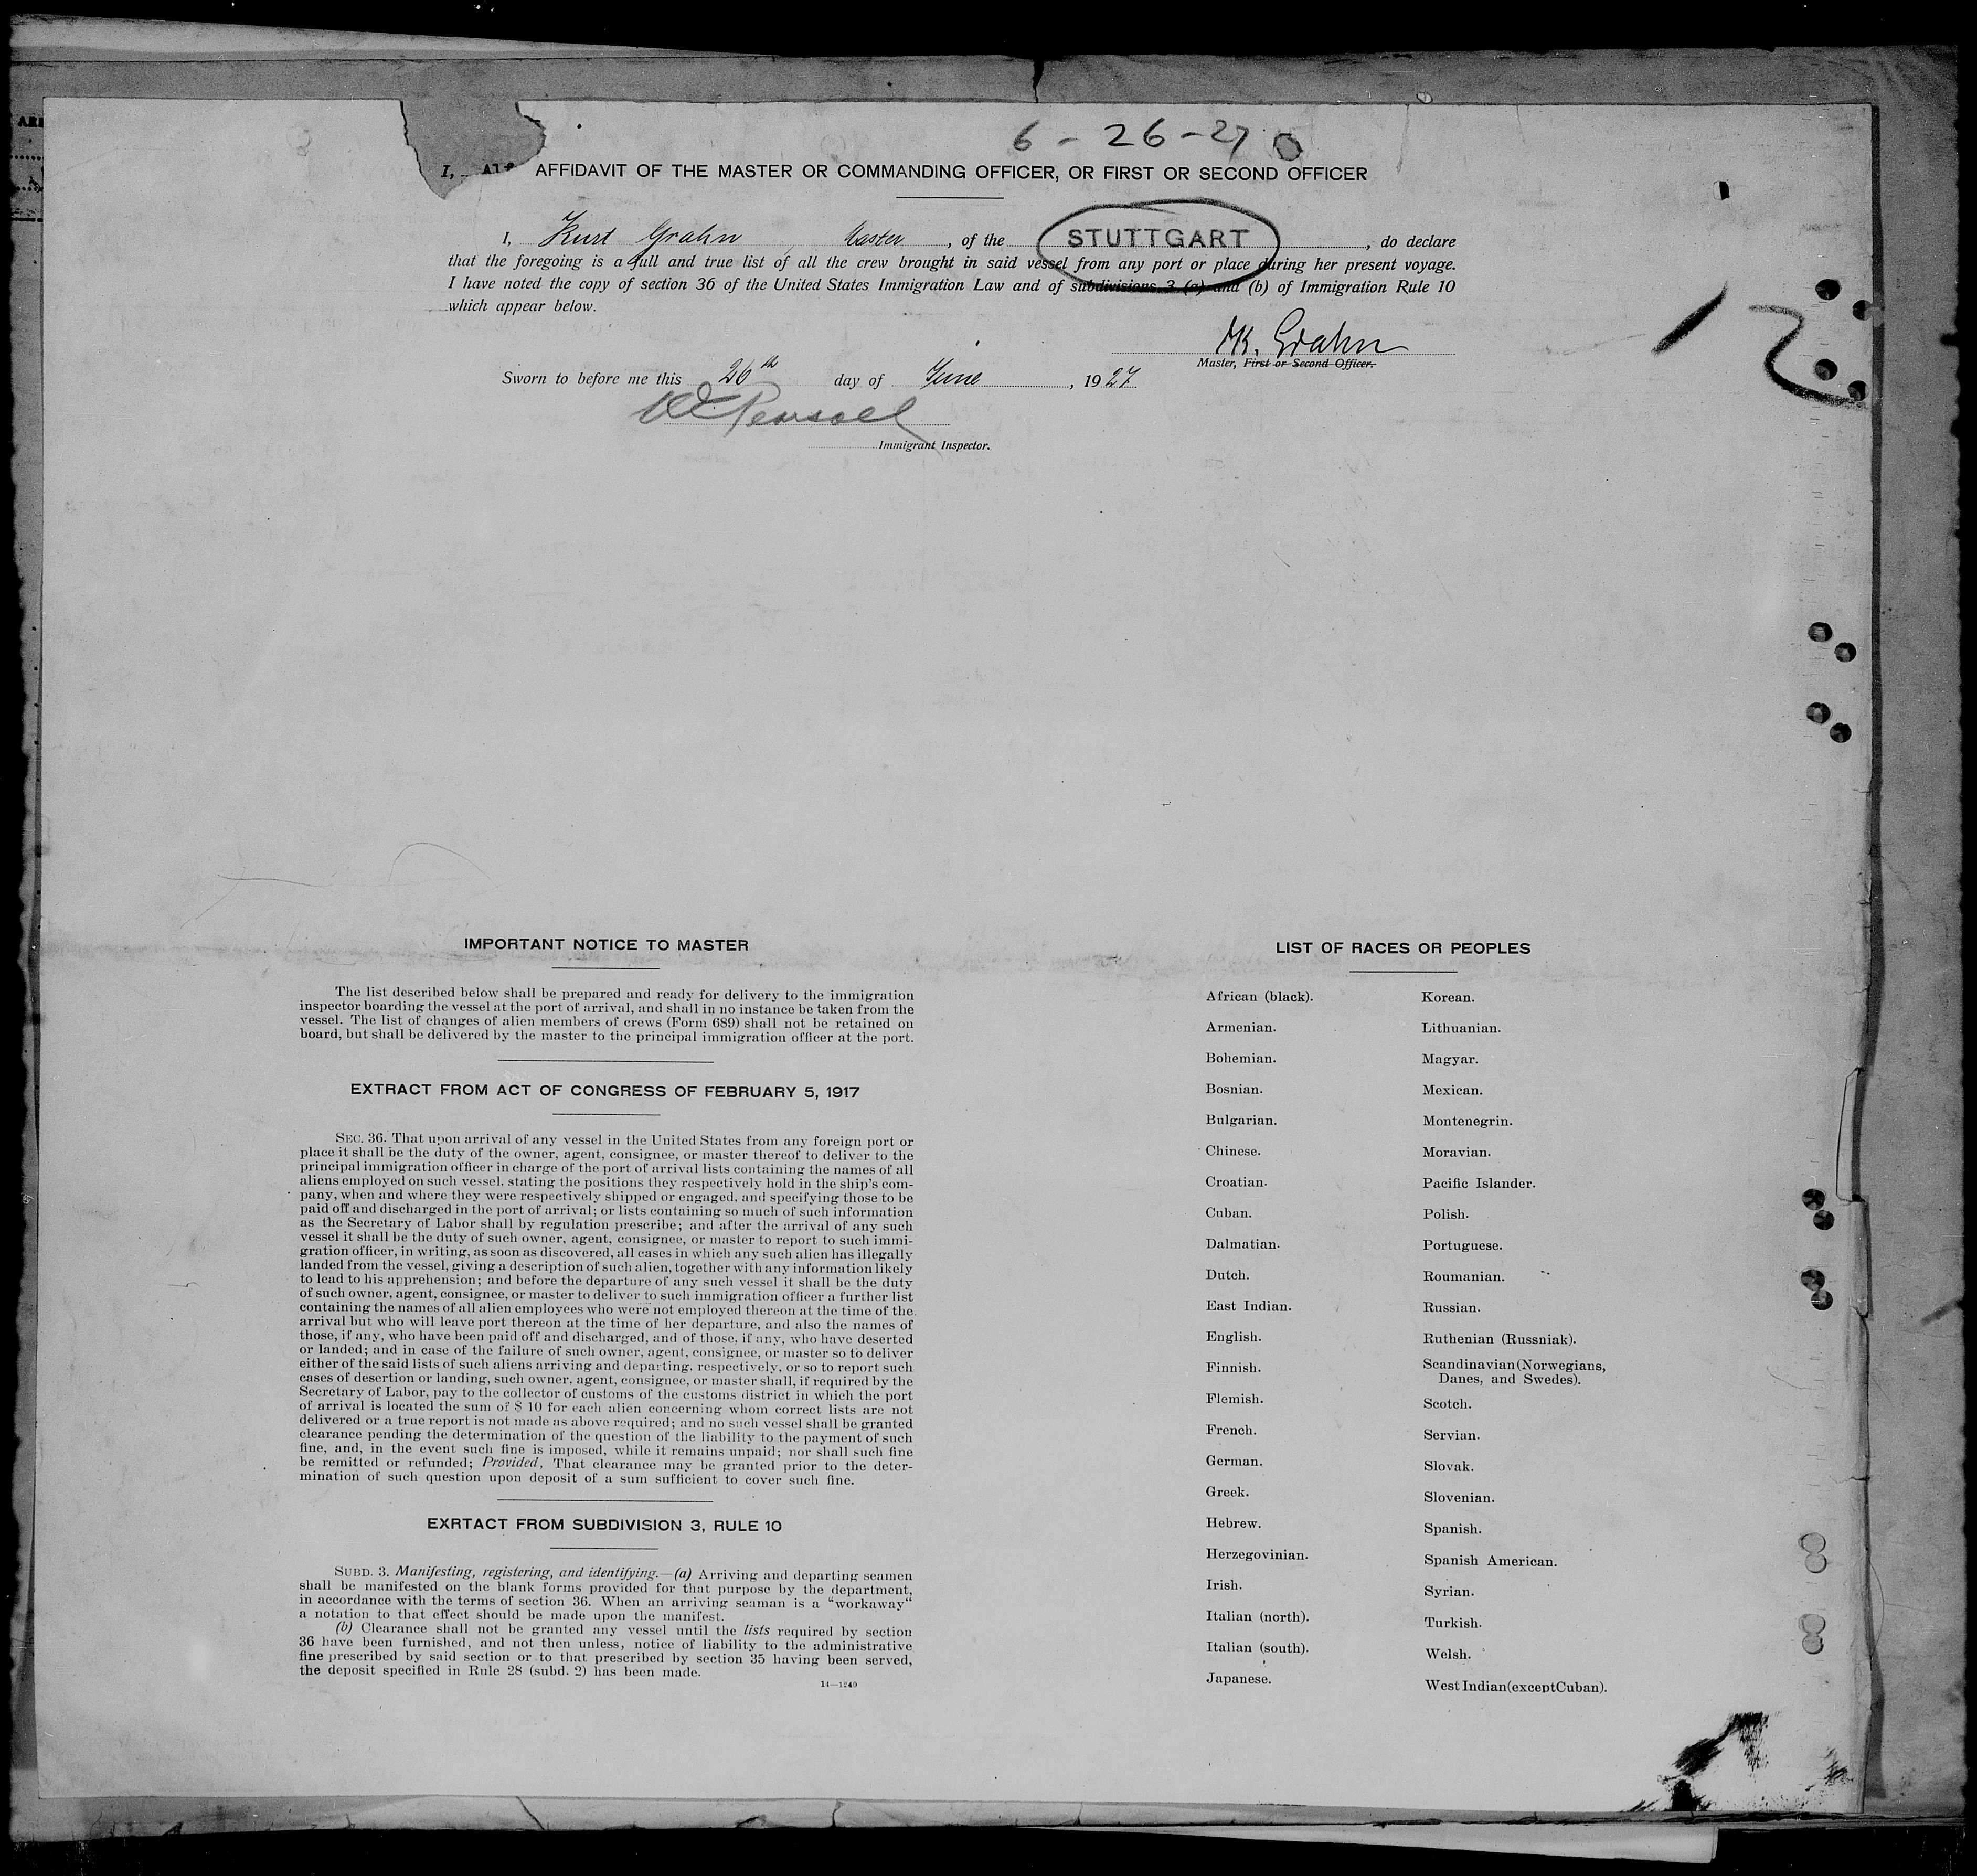 6 - 26 - 27
AFFIDAVIT OF THE MASTER OR COMMANDING OFFICER, OR FIRST OR SECOND OFFICER
I, Kurt Grahn, Master, of the STUTTGART, do declare
that the foregoing is a full and true list of all the crew brought in said vessel from any port or place during her present voyage.
I have noted the copy of section 36 of the United States Immigration Law and of subdivisions 3 (a) and (b) of Immigration Rule 10
which appear below.
K. Grahn
Master, First or Second Officer.
Sworn to before me this 26th day of June, 1927
Immigrant Inspector.
12
IMPORTANT NOTICE TO MASTER
The list described below shall be prepared and ready for delivery to the immigration
inspector boarding the vessel at the port of arrival, and shall in no instance be taken from the
vessel. The list of changes of alien members of crews (Form 689) shall not be retained on
board, but shall be delivered by the master to the principal immigration officer at the port.
EXTRACT FROM ACT OF CONGRESS OF FEBRUARY 5, 1917
SEC. 36. That upon arrival of any vessel in the United States from any foreign port or
place it shall be the duty of the owner, agent, consignee, or master thereof to deliver to the
principal immigration officer in charge of the port of arrival lists containing the names of all
aliens employed on such vessel, stating the positions they respectively hold in the ship's com-
pany, when and where they were respectively shipped or engaged, and specifying those to be
paid off and discharged in the port of arrival; or lists containing so much of such information
as the Secretary of Labor shall by regulation prescribe; and after the arrival of any such
vessel it shall be the duty of such owner, agent, consignee, or master to report to such immi-
gration officer, in writing, as soon as discovered, all cases in which any such alien has illegally
landed from the vessel, giving a description of such alien, together with any information likely
to lead to his apprehension; and before the departure of any such vessel it shall be the duty
of such owner, agent, consignee, or master to deliver to such immigration officer a further list
containing the names of all alien employees who were not employed thereon at the time of the
arrival but who will leave port thereon at the time of her departure, and also the names of
those, if any, who have been paid off and discharged, and of those, if any, who have deserted
or landed; and in case of the failure of such owner, agent, consignee, or master so to deliver
either of the said lists of such aliens arriving and departing, respectively, or so to report such
cases of desertion or landing, such owner, agent, consignee, or master shall, if required by the
Secretary of Labor, pay to the collector of customs of the customs district in which the port
of arrival is located the sum of $ 10 for each alien concerning whom correct lists are not
delivered or a true report is not made as above required; and no such vessel shall be granted
clearance pending the determination of the question of the liability to the payment of such
fine, and, in the event such fine is imposed, while it remains unpaid; nor shall such fine
be remitted or refunded; Provided, That clearance may be granted prior to the deter-
mination of such question upon deposit of a sum sufficient to cover such fine.
EXRTACT FROM SUBDIVISION 3, RULE 10
SUBD. 3. Manifesting, registering, and identifying.—(a) Arriving and departing seamen
shall be manifested on the blank forms provided for that purpose by the department,
in accordance with the terms of section 36. When an arriving seaman is a "workaway"
a notation to that effect should be made upon the manifest.
(b) Clearance shall not be granted any vessel until the lists required by section
36 have been furnished, and not then unless, notice of liability to the administrative
fine prescribed by said section or to that prescribed by section 35 having been served,
the deposit specified in Rule 28 (subd. 2) has been made.
14—1240
LIST OF RACES OR PEOPLES
African (black).
Armenian.
Bohemian.
Bosnian.
Bulgarian.
Chinese.
Croatian.
Cuban.
Dalmatian.
Dutch.
East Indian.
English.
Finnish.
Flemish.
French.
German.
Greek.
Hebrew.
Herzegovinian.
Irish.
Italian (north).
Italian (south).
Japanese.
Korean.
Lithuanian.
Magyar.
Mexican.
Montenegrin.
Moravian.
Pacific Islander.
Polish.
Portuguese.
Roumanian.
Russian.
Ruthenian (Russniak).
Scandinavian (Norwegians,
Danes, and Swedes).
Scotch.
Servian.
Slovak.
Slovenian.
Spanish.
Spanish American.
Syrian.
Turkish.
Welsh.
West Indian (except Cuban).